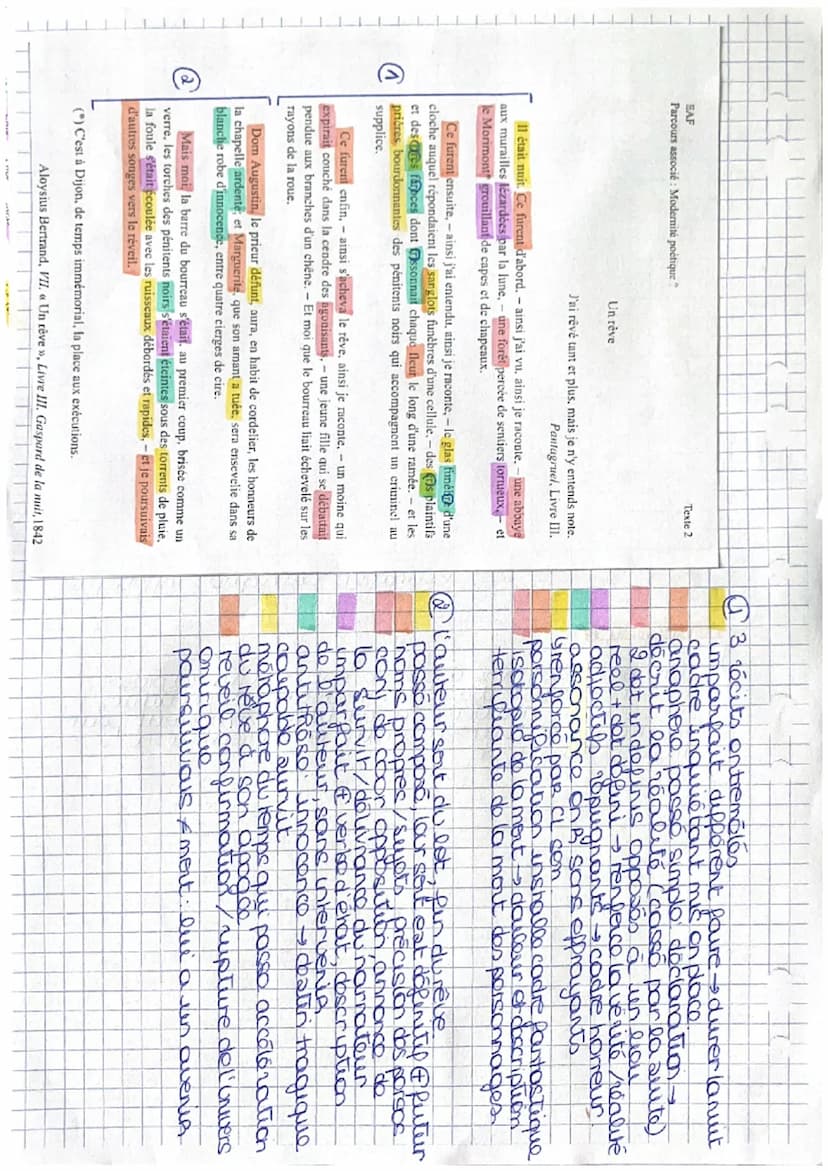 EAF
Texte 2
Parcours associé : Modernité poétique ?
Un rêve
J'ai rêvé tant et plus, mais je n'y entends note.
Pantagruel, Livre III.
①
Il était nuit. Ce furent d'abord, – ainsi j'ai vu, ainsi je raconte, – une abbaye
aux murailles lézardées par la lune, – une forêt percée de sentiers tortueux, – et
le Morimont* grouillant de capes et de chapeaux.
Ce furent ensuite, – ainsi j'ai entendu, ainsi je raconte, – le glas funèbre d'une
cloche auquel répondaient les sanglots funèbres d'une cellule, – des cris plaintifs
et des rires féroces dont frissonnait chaque fleur le long d'une ramée, – et les
prières bourdonnantes des pénitents noirs qui accompagnent un criminel au
supplice.
Ce furent enfin, – ainsi s'acheva le rêve, ainsi je raconte, – un moine qui
expirait couché dans la cendre des agonisants, – une jeune fille qui se débattait
pendue aux branches d'un chêne. – Et moi que le bourreau liait échevelé sur les
rayons de la roue.
②
Dom Augustin, le prieur défunt, aura, en habit de cordelier, les honneurs de
la chapelle ardente, et Marguerite, que son amant a tuée, sera ensevelie dans sa
blanche robe d'innocence, entre quatre cierges de cire.
Mais moi, la barre du bourreau s'était, au premier coup, brisée comme un
verre, les torches des pénitents noirs s'étaient éteintes sous des torrents de pluie,
la foule s'était écoulée avec les ruisseaux débordés et rapides, – et je poursuivais
d'autres songes vers le réveil.
(*) C'est à Dijon, de temps immémorial, la place aux exécutions.
Aloysius Bertrand, VII. « Un rêve », Livre III. Gaspard de la nuit, 1842
① 3 récits entremêlés
imparfait différent faire → durer la nuit
cadre inquiétant mis en place
anaphore passé simple : déclaration →
décrit la réalité (cassé par la suite)
2 det indéfinis opposés à un lieu
réel + det défini → renforce la vérité/réalité
adjectifs répugnants → cadre horreur
assonance en i, sons effrayants
renforcé par cl son
personnification installe cadre fantastique
isotopie de la mort → douleur et description
terrifiante de la mort des personnages
② l'auteur sort du lot, fin du rêve
passé composé, leur sort est définitif ⊕ futur
noms propres / sujets, précision des persos
conj de coor opposition, annonce de
la survie / délivrance du narrateur
imparfait ⊕ verbe d'état, description
de l'auteur, sans intervenir
antithèse : innocence → destin tragique
coupable survit
métaphore du temps qui passe accélération
du rêve à son apogée
réveil confirmation / rupture de l'univers
onirique
poursuivais ≠ mort : lui a un avenir